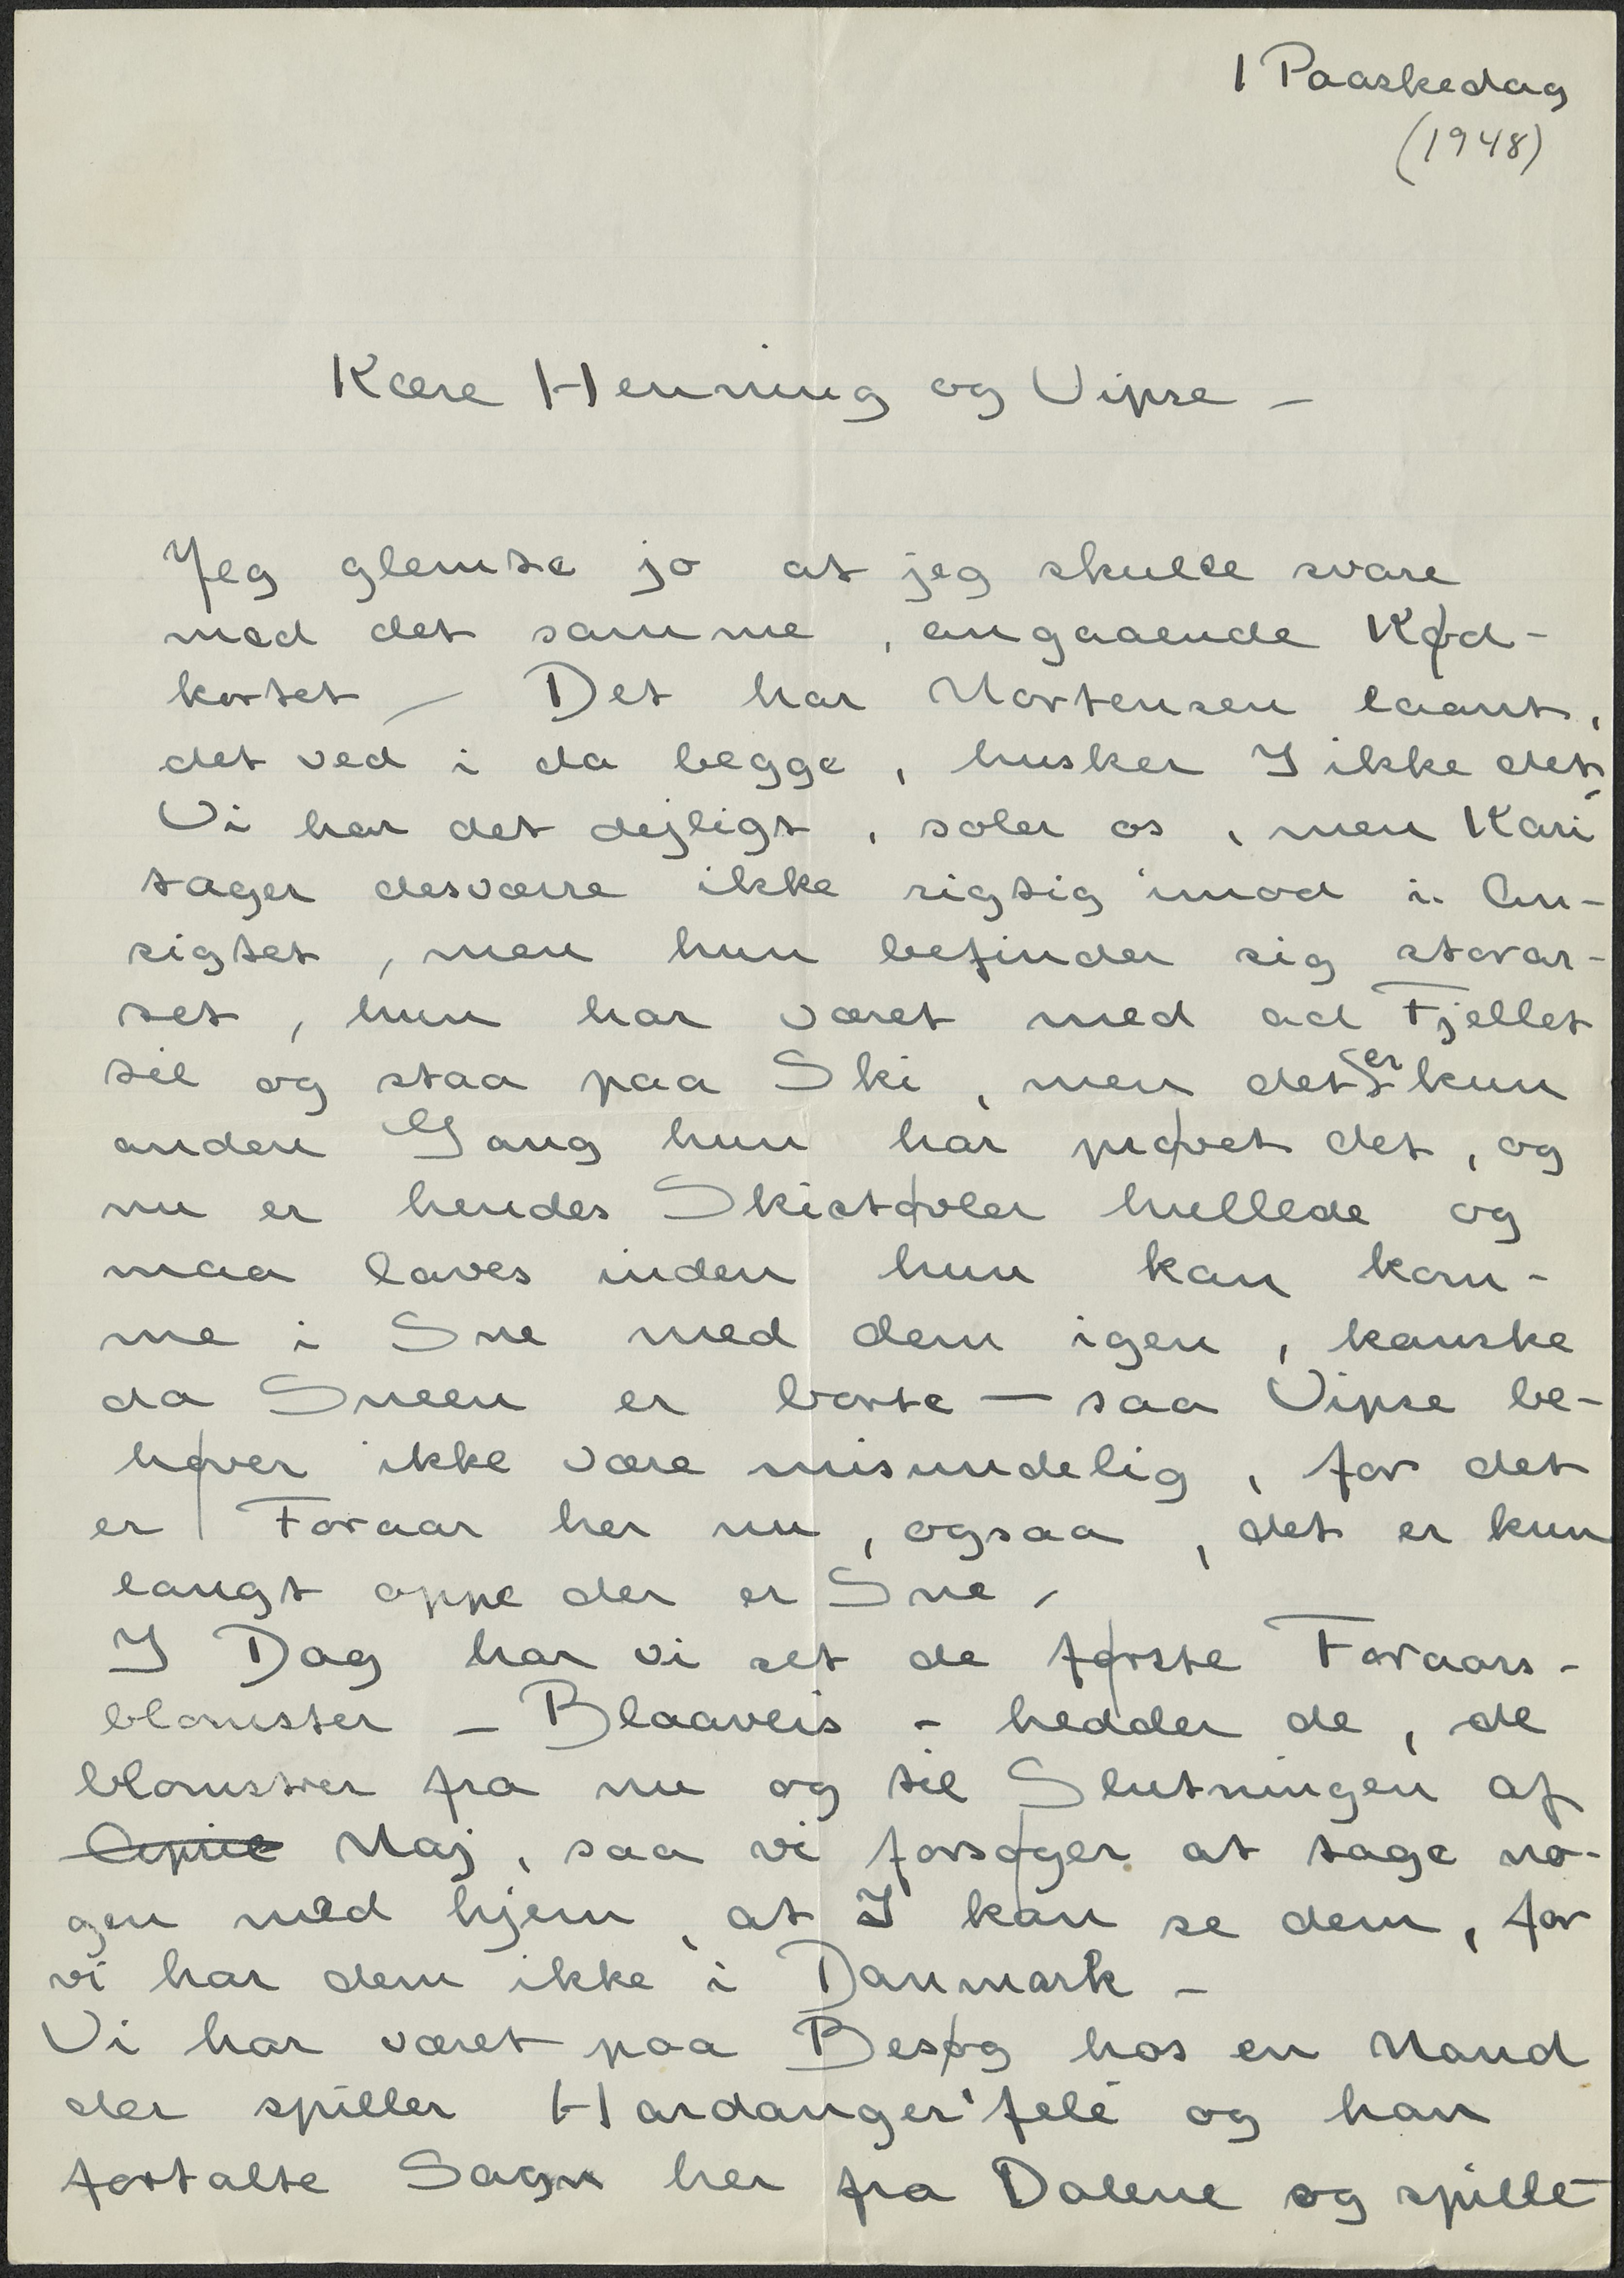 1 Paaskedag
(1948)
Kære Henning og Vipse –
Jeg glemte jo at jeg skulle svare
med det samme, angaaende Kød-
kortet – Det har Mortensen laant,
det ved i da begge, husker I ikke det,
Vi har det dejligt, soler os, men Kari
tager desværre ikke rigtig imod i An-
sigtet, men hun befinder sig storar-
tet, hun har været med ad Fjellet
til og staa paa Ski, men det er kun
anden Gang hun har prøvet det, og
nu er hendes Skistøvler hullede og
maa laves inden hun kan kom-
me i Sne med dem igen, kanske
da Sneen er borte – saa Vipse be-
høver ikke være misundelig, for det
er Foraar her nu, ogsaa, det er kun
langt oppe der er Sne –
I Dag har vi set de første Foraars-
blomster – Blaaveis – hedder de, de
blomstrer fra nu og til Slutningen af
April Maj, saa vi forsøger at tage no-
gen med hjem, at I kan se dem, for
vi har dem ikke i Danmark –
Vi har været paa Besøg hos en Mand
der spiller Hardanger'fele og han
fortalte Sagn her fra Dalene og spille